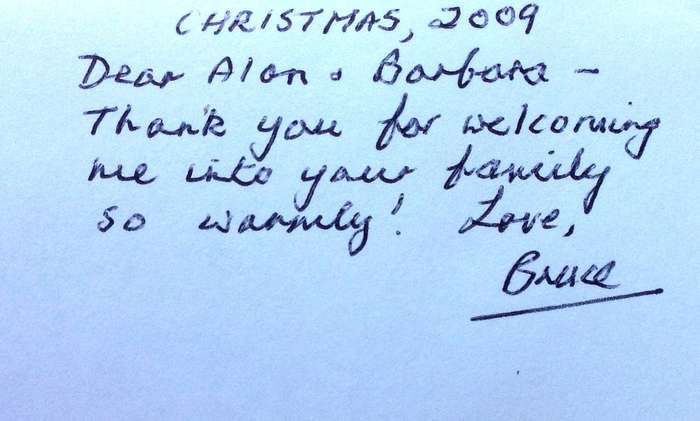 CHRISTMAS, 2009
Dear Alan & Barbara -
Thank you for welcoming
me into your family
so warmly! Love,
Bruce